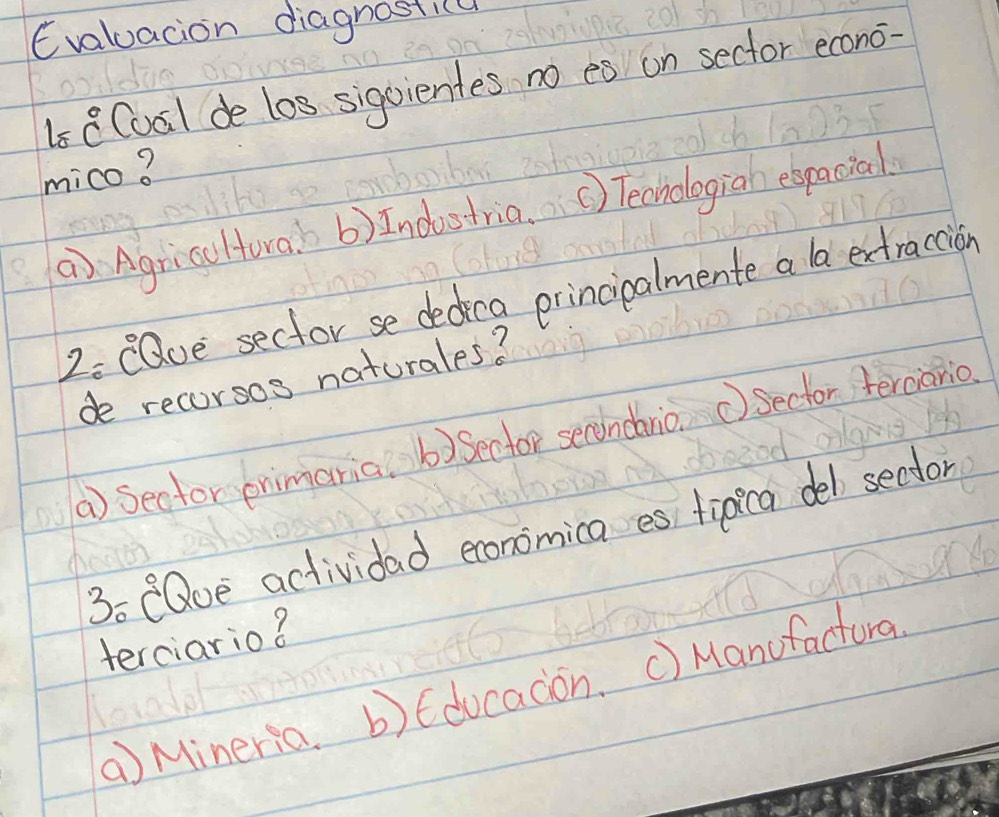 Evaluación diagnostica
1. ¿Cuál de los siguientes no es un sector econó-
mico?
a) Agricultura. b) Industria. c) Tecnologia espacial.
2. ¿Qué sector se dedica principalmente a la extracción
de recursos naturales?
a) Sector primaria. b) Sector secundario. c) Sector terciario.
3. ¿Qué actividad económica es tipica del sector
terciario?
a) Mineria. b) Educación. c) Manufactura.